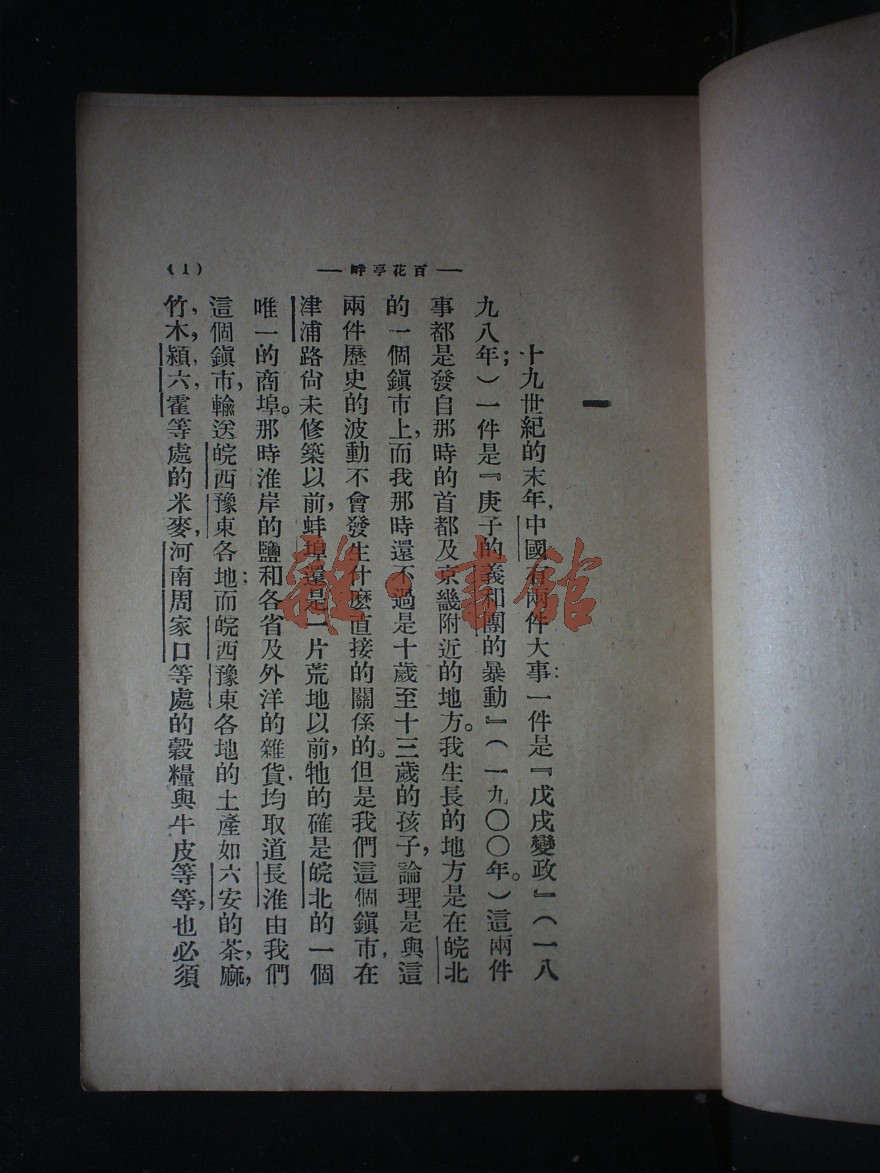 —百花亭畔—
(1)
一
十九世紀的末年,中國有兩件大事:一件是『戊戌變政』(一八
九八年;)一件是『庚子的義和團的暴動』(一九〇〇年。)這兩件
事都是發自那時的首都及京畿附近的地方。我生長的地方是在皖北
的一個鎮市上,而我那時還不過是十歲至十三歲的孩子,論理是與這
兩件歷史的波動不會發生什麼直接的關係的。但是我們這個鎮市,在
津浦路尙未修築以前,蚌埠還是一片荒地以前,牠的確是皖北的一個
唯一的商埠。那時淮岸的鹽和各省及外洋的雜貨,均取道長淮由我們
這個鎮市,輸送皖西豫東各地;而皖西豫東各地的土產如六安的茶,麻,
竹,木,潁,六,霍等處的米麥,河南周家口等處的穀糧與牛皮等等,也必須
雜·書館